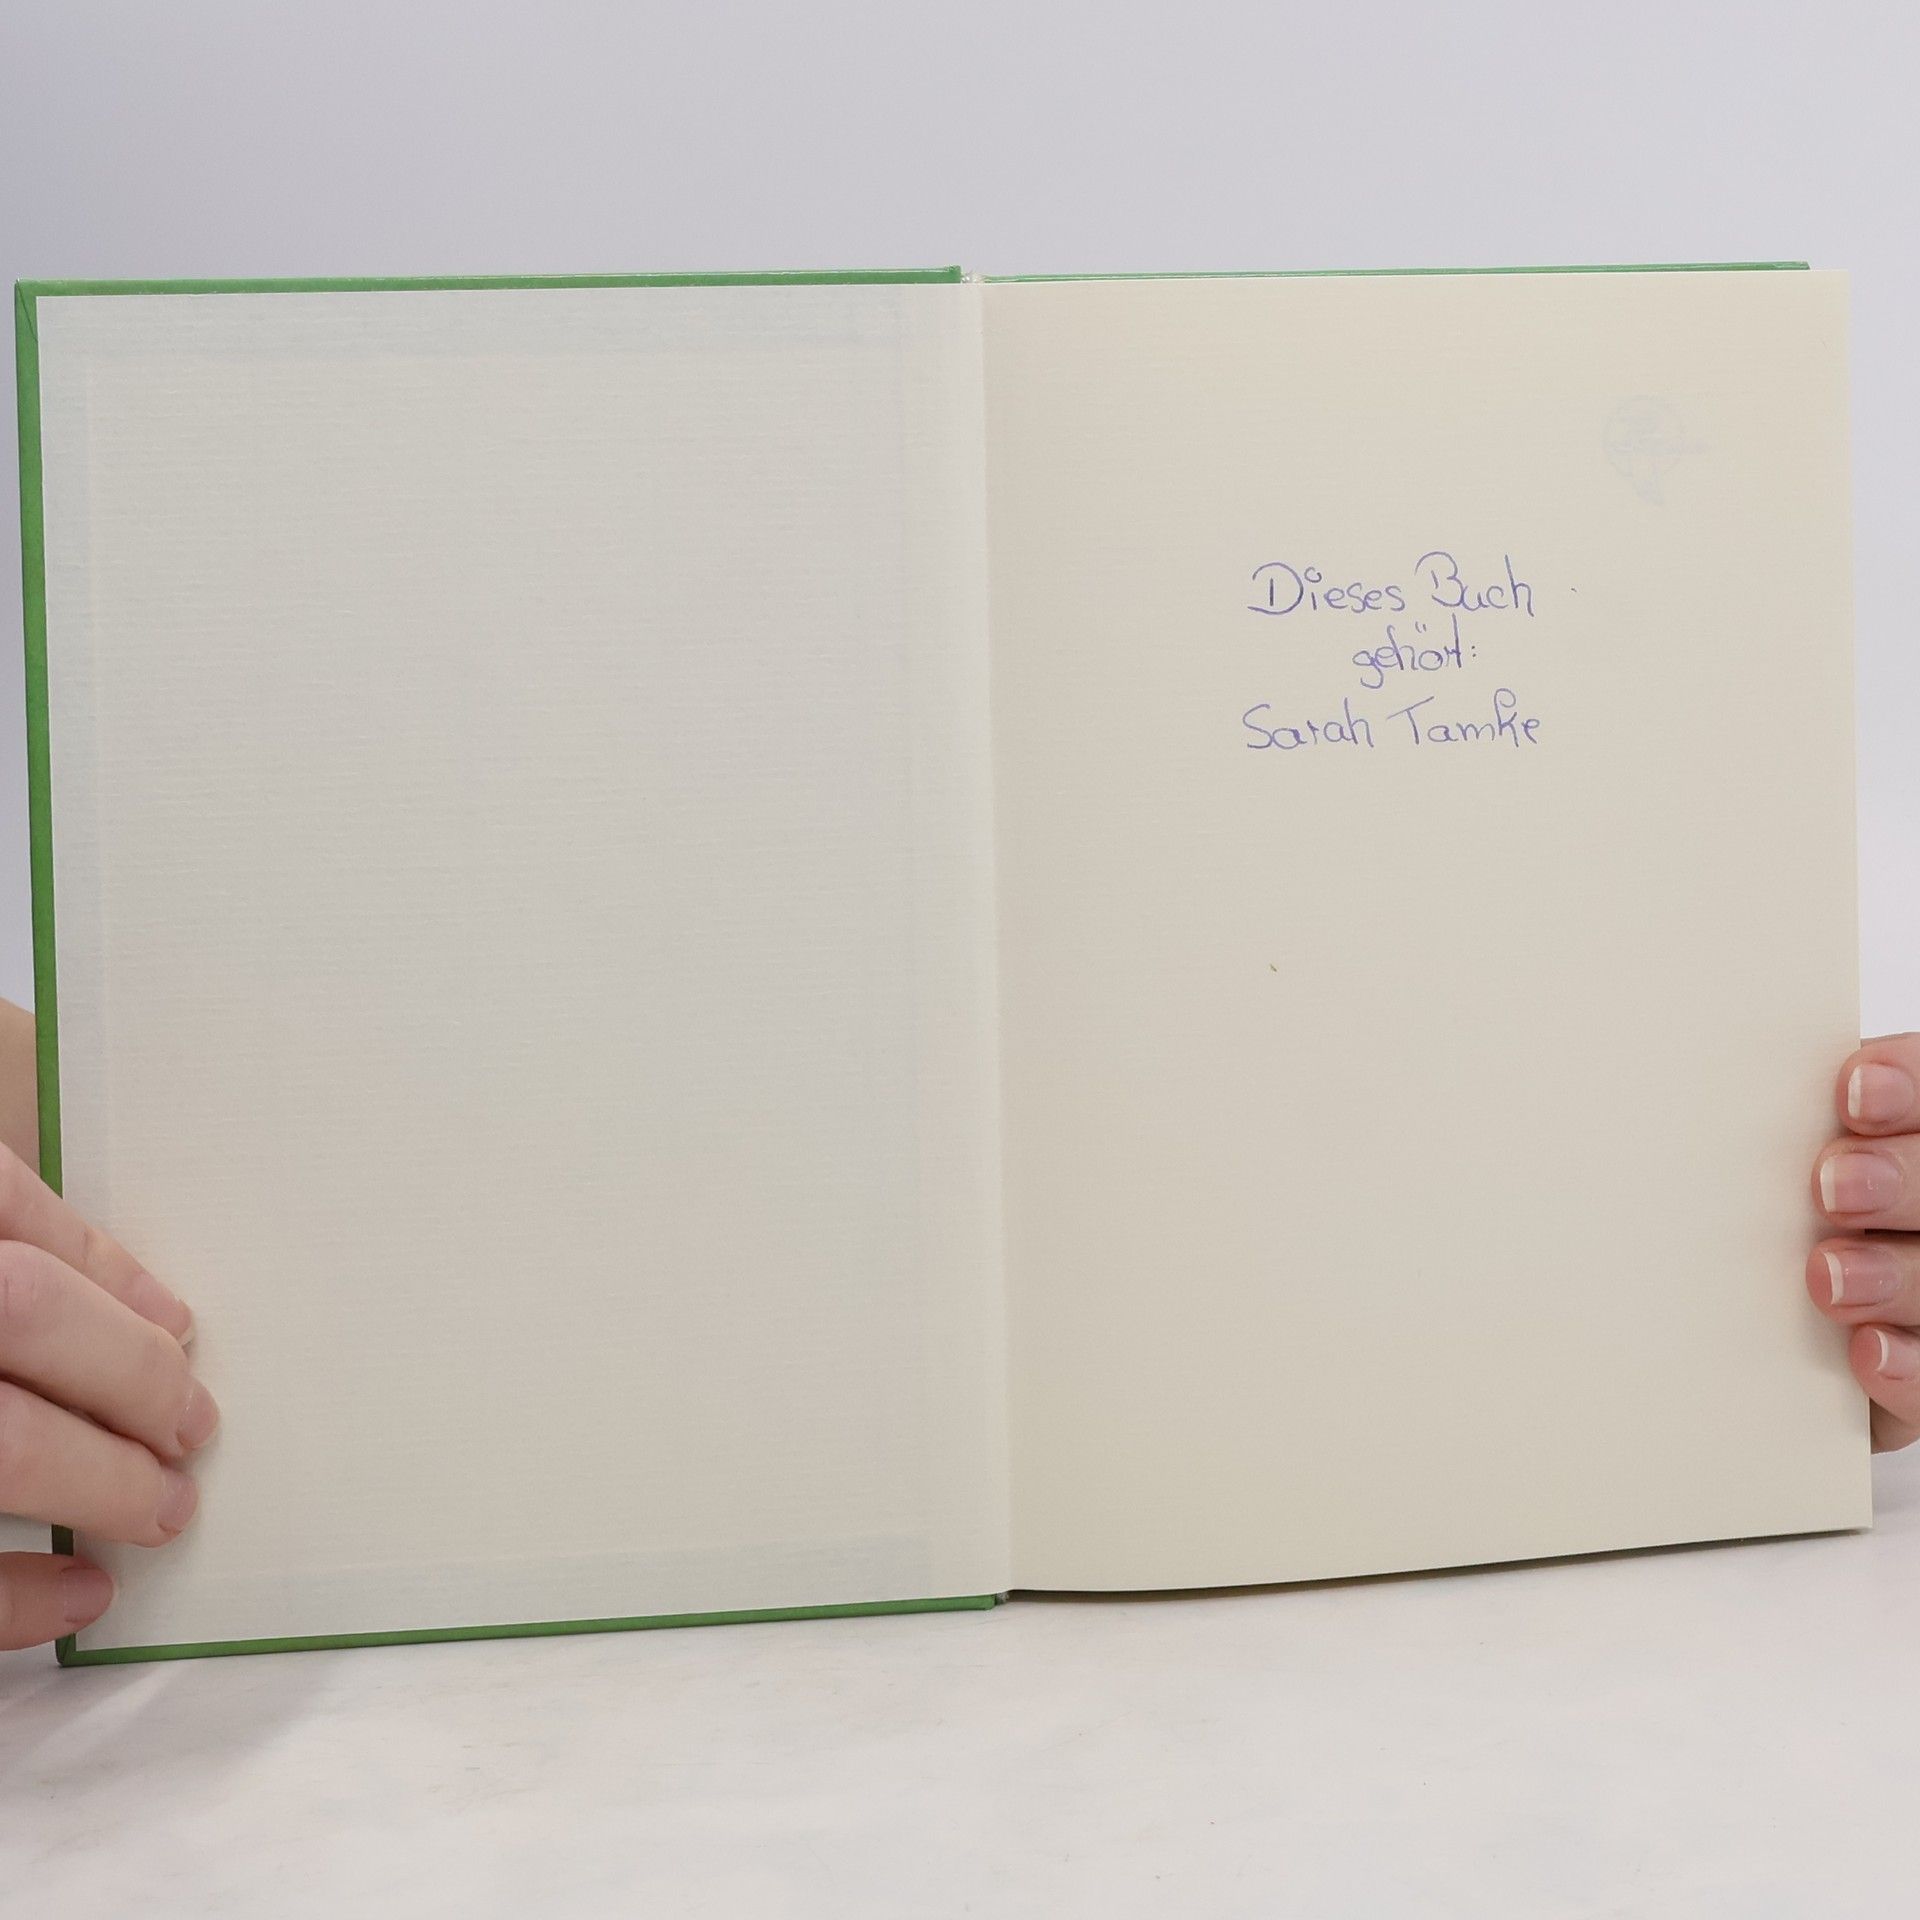 Dieses Buch
gehört:
Sarah Tamke